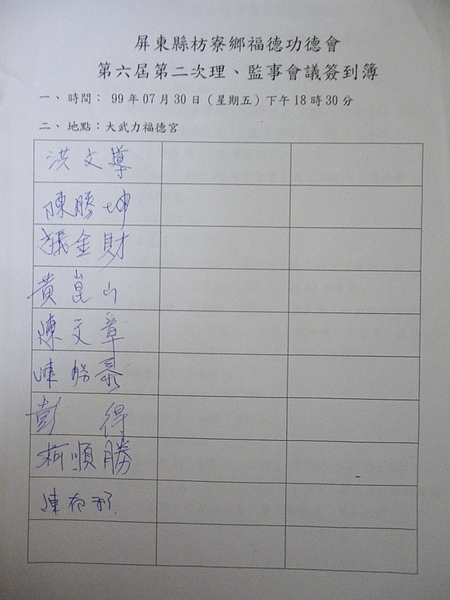 屏東縣枋寮鄉福德功德會
第六屆第二次理、監事會議簽到簿
一、時間：99年07月30日（星期五）下午18時30分
二、地點：大武力福德宮
洪文導
陳勝坤
張金財
黃崑山
陳文章
陳
彭 得
柯順勝
陳